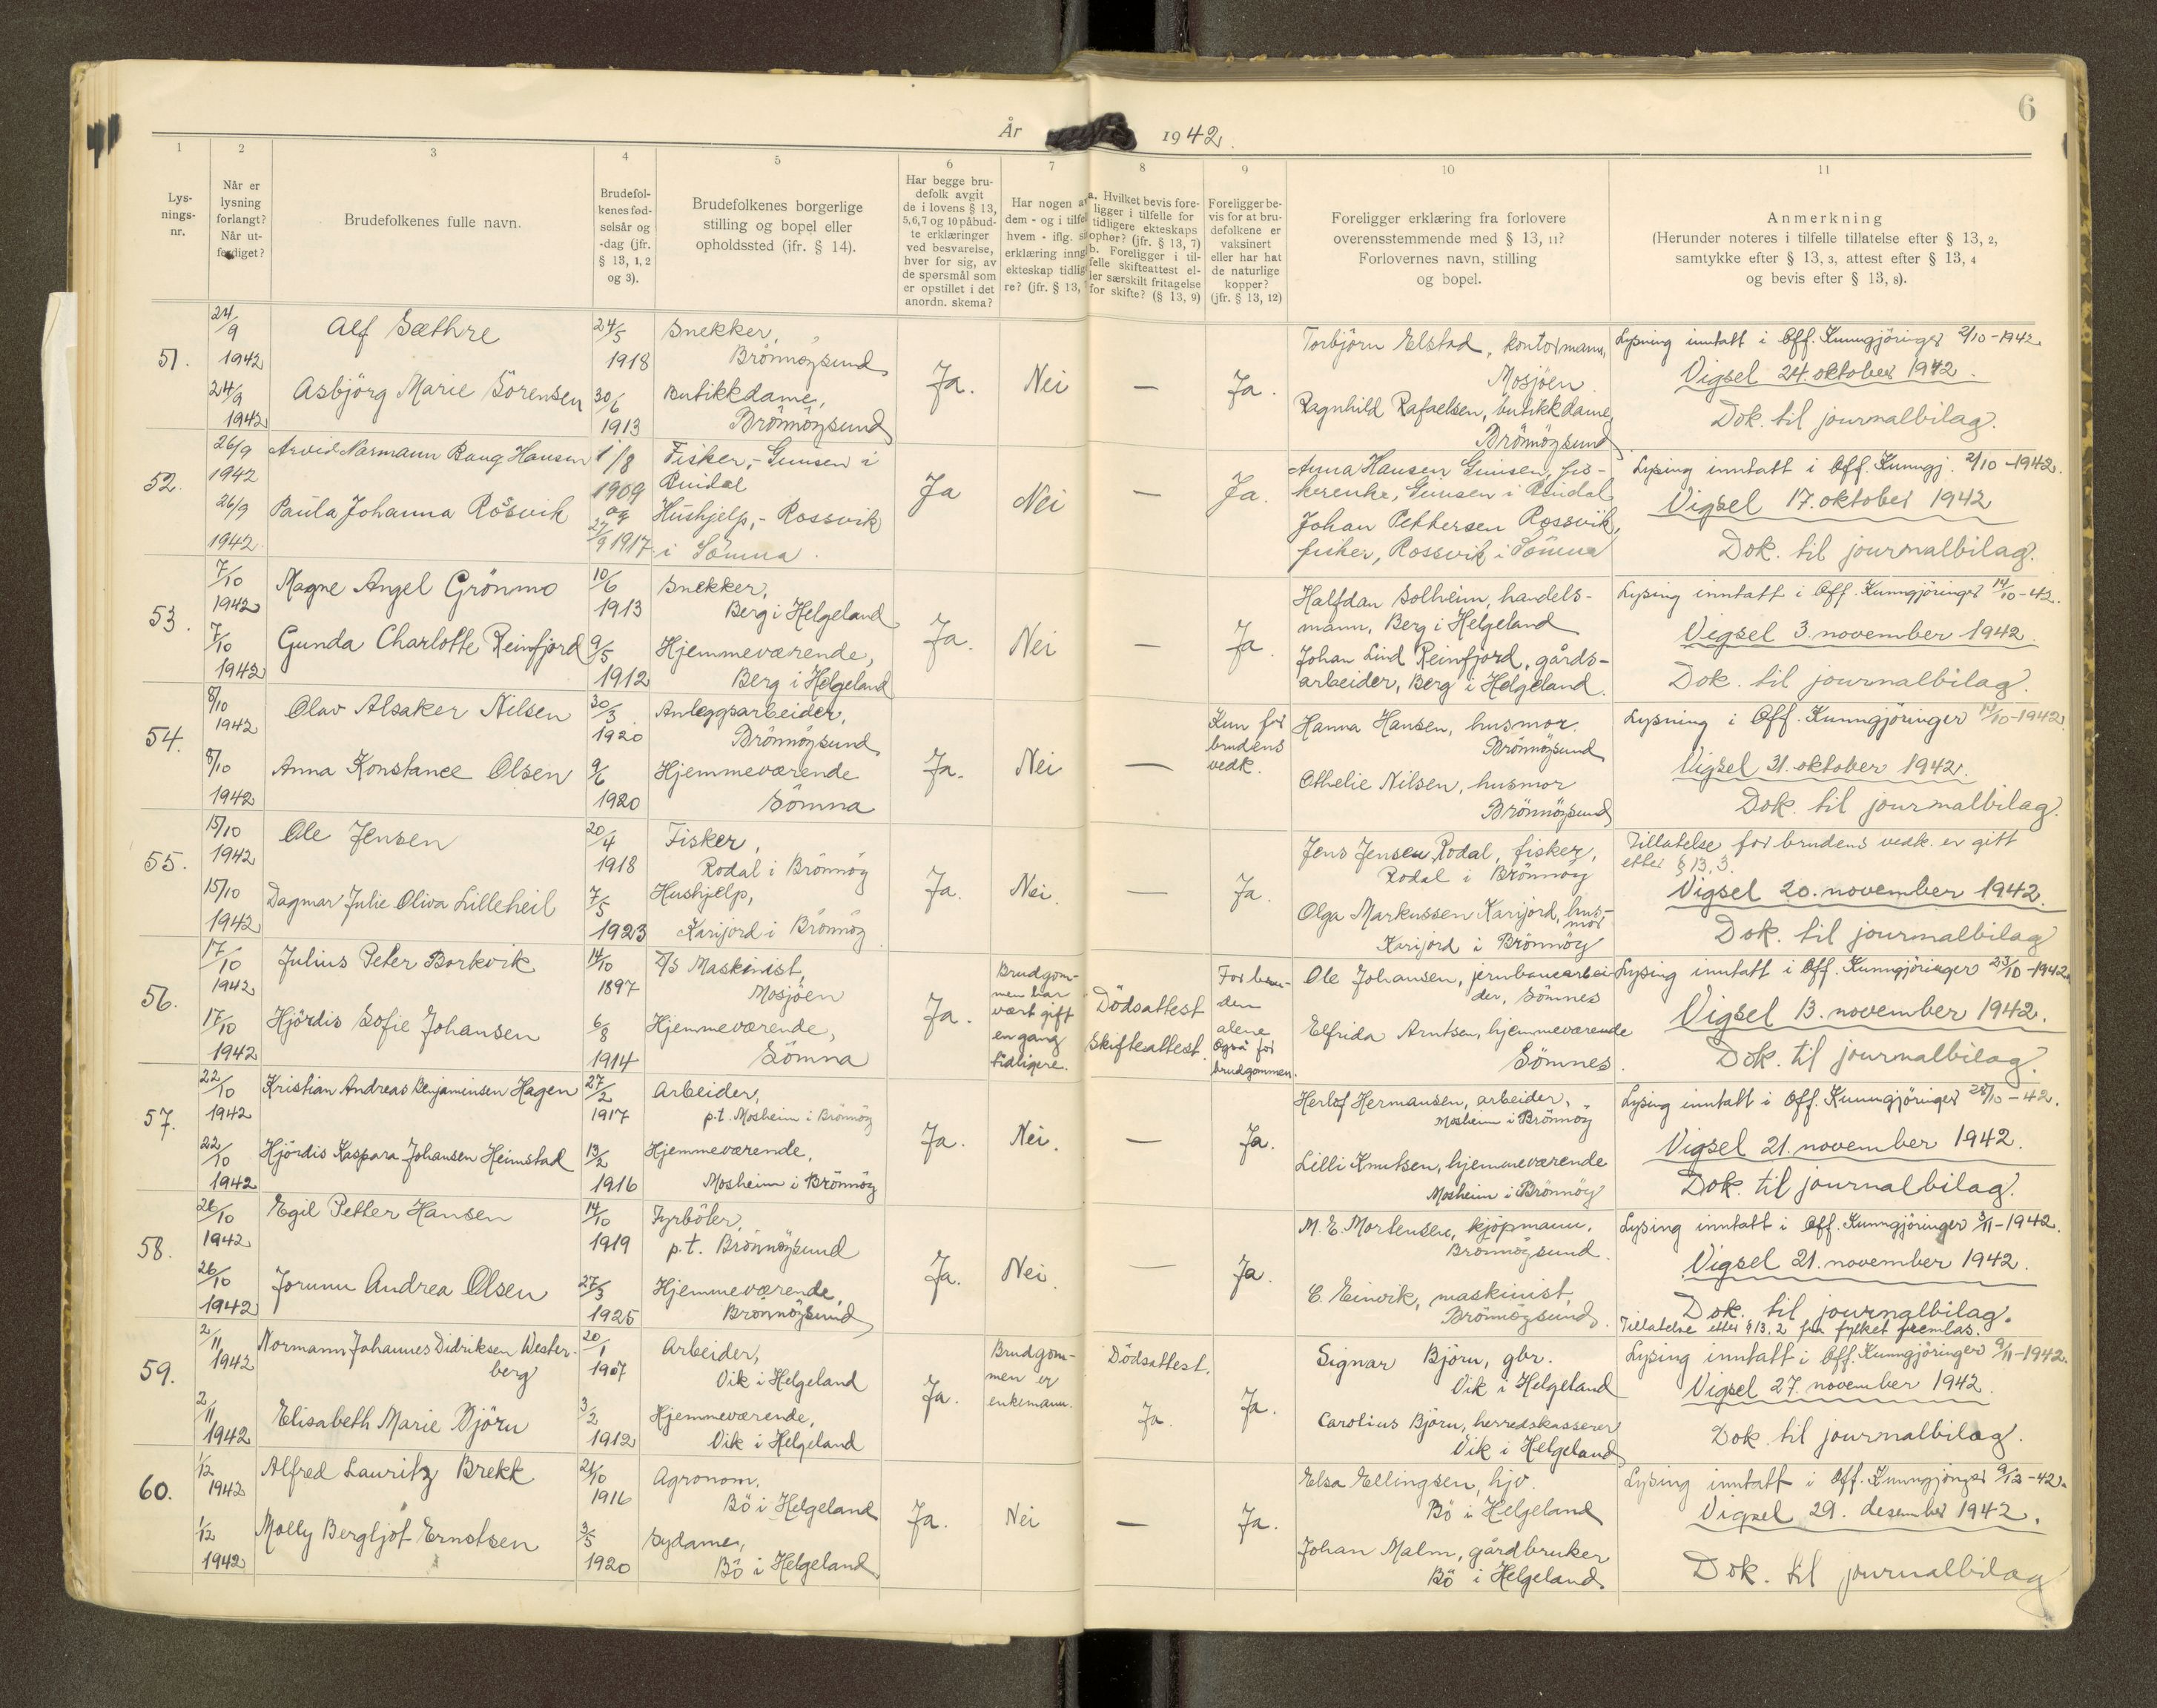 6
År 1942.
1 2 3 4 5 6 7 8 9 10 11
Lys-
nings-
nr.
Når er
lysning
forlangt?
Når ut-
ferdiget?
Brudefolkenes fulle navn.
Brudefol-
kenes fød-
selsår og
-dag (jfr.
§ 13, 1, 2
og 3).
Brudefolkenes borgerlige
stilling og bopel eller
opholdssted (jfr. § 14).
Har begge bru-
defolk avgit
de i lovens § 13,
5, 6, 7 og 10 påbud-
te erklæringer
ved besvarelse,
hver for sig, av
de spørsmål som
er opstillet i det
anordn. skema?
Har nogen a
dem - og i tilfel
hvem - iflg. s
erklæring inng
ekteskap tidlig
re? (jfr. § 13,
a. Hvilket bevis fore-
ligger i tilfelle for
tidligere ekteskaps
ophør? (jfr. § 13, 7)
b. Foreligger i til-
felle skifteattest el-
ler særskilt fritagelse
for skifte? (§ 13, 9)
Foreligger be-
vis for at bru-
defolkene er
vaksinert
eller har hat
de naturlige
kopper?
(jfr. § 13, 12)
Foreligger erklæring fra forlovere
overensstemmende med § 13, 11?
Forlovernes navn, stilling
og bopel.
Anmerkning
(Herunder noteres i tilfelle tillatelse efter § 13, 2,
samtykke efter § 13, 3, attest efter § 13, 4
og bevis efter § 13, 8).
51.
24/9
1942
24/9
1942
Alf Sæthre
Asbjörg Marie Sörensen
24/5
1918
30/6
1913
Snekker,
Brönnöysund
Butikkdame,
Brönnöysund
Ja.
Nei
—
Ja.
Torbjörn Elstad, kontormann,
Mosjöen.
Ragnhild Rafaelsen, butikkdame
Brönnöysund
Lysning inntatt i Off. Kunngjöringer 2/10-1942.
Vigsel 24. oktober 1942.
Dok. til journalbilag.
52.
26/9
1942
26/9
1942
Arvid Normann Baug Hansen
Paula Johanna Rossvik
1/8
1909
og
27/9 1917
Fisker, - Gunsen i
Rindal
Hushjelp, - Rossvik
i Sömna.
Ja
Nei
—
Ja.
Anna Hansen Gunsen, fis-
kerenke, Gunsen i Rindal
Johan Pettersen Rossvik,
fisker, Rossvik i Sömna
Lysing inntatt i Off. Kunngj. 2/10-1942.
Vigsel 17. oktober 1942
Dok. til journalbilag.
53.
7/10
1942
7/10
1942
Magne Angel Grönmo
Gunda Charlotte Reinfjord
10/6
1913
9/5
1912
Snekker,
Berg i Helgeland
Hjemmeværende,
Berg i Helgeland
Ja.
Nei
—
Ja.
Halfdan Solheim, handels-
mann, Berg i Helgeland
Johan Lind Reinfjord, gårds-
arbeider, Berg i Helgeland.
Lysing inntatt i Off. Kunngjöringer 14/10-42.
Vigsel 3. november 1942.
Dok. til journalbilag.
54.
8/10
1942
8/10
1942
Olav Alsaker Nilsen
Anna Konstance Olsen
30/3
1920
9/6
1920
Anleggsarbeider,
Brönnöysund
Hjemmeværende
Sömna
Ja.
Nei
—
Kun for
brudens
vedk.
Hanna Hansen, husmor.
Brönnöysund
Othelie Nilsen, husmor
Brönnöysund
Lysning i Off. Kunngjöringer 14/10-1942.
Vigsel 31. oktober 1942.
Dok. til journalbilag.
55.
15/10
1942
15/10
1942
Ole Jensen
Dagmar Julie Oliva Lilleheil
20/4
1918
7/5
1923
Fisker,
Rodal i Brönnöy
Hushjelp,
Karijord i Brönnöy
Ja.
Nei.
—
Ja.
Jens Jensen Rodal, fisker,
Rodal i Brönnöy
Olga Markussen Karijord, hus-
mor
Karijord i Brönnöy
Tillatelse for brudens vedk. er gitt
etter § 13, 3.
Vigsel 20. november 1942.
Dok. til journalbilag
56.
17/10
1942
17/10
1942
Julius Peter Borkvik
Hjördis Sofie Johansen
14/10
1897
6/8
1914
D/S Maskinist,
Mosjöen
Hjemmeværende,
Sömna
Ja.
Brudgom-
men har
vært gift
en gang
tidligere.
Dödsattest
Skifteattest.
For bru-
den
alene
Også for
brudgommen.
Ole Johansen, jernbanearbei-
der, Sömnes
Elfrida Arntsen, hjemmeværende
Sömnes.
Lysing inntatt i Off. Kunngjöringer 23/10-1942.
Vigsel 13. november 1942.
Dok. til journalbilag.
57.
22/10
1942
22/10
1942
Kristian Andreas Benjaminsen Hagen
Hjördis Kaspara Johansen Heimstad
27/2
1917
13/2
1916
Arbeider,
p.t. Mosheim i Brönnöy
Hjemmeværende,
Mosheim i Brönnöy
Ja.
Nei.
—
Ja.
Herlof Hermansen, arbeider,
Mosheim i Brönnöy
Lilli Knutsen, hjemmeværende
Mosheim i Brönnöy
Lysing inntatt i Off. Kunngjöringer 28/10-42.
Vigsel 21. november 1942.
Dok. til journalbilag.
58.
26/10
1942
26/10
1942
Egil Petter Hansen
Jorunn Andrea Olsen
14/10
1919
27/3
1925
Fyrböter,
p.t. Brönnöysund
Hjemmeværende,
Brönnöysund
Ja.
Nei.
—
Ja.
M. E. Mortensen, kjöpmann,
Brönnöysund.
C. Einvik, maskinist,
Brönnöysund.
Lysing inntatt i Off. Kunngjöringer 3/11-1942.
Vigsel 21. november 1942.
Dok. til journalbilag.
Tillatelse etter § 13, 2 fra fylket fremlas.
59.
2/11
1942
2/11
1942
Normann Johannes Didriksen Wester-
berg
Elisabeth Marie Björu
20/1
1907
3/2
1912
Arbeider,
Vik i Helgeland
Hjemmeværende,
Vik i Helgeland
Ja.
Brudgom-
men er
enkemann.
Dödsattest.
Ja.
Ja.
Signar Björu, gbr.
Vik i Helgeland
Carolius Björu, herredskasserer
Vik i Helgeland
Lysing inntatt i Off. Kunngjöringer 9/11-1942.
Vigsel 27. november 1942.
Dok. til journalbilag.
60.
1/12
1942
1/12
1942
Alfred Lauritz Brekk
Molly Bergljot Ernstsen
21/10
1916
3/5
1920
Agronom,
Bö i Helgeland
Sydame,
Bö i Helgeland
Ja.
Nei
—
Ja.
Elsa Ellingsen, hjv.
Bö i Helgeland
Johan Malm, gårdbruker
Bö i Helgeland
Lysing inntatt i Off. Kunngjöringer 9/12-42.
Vigsel 29. desember 1942.
Dok. til journalbilag